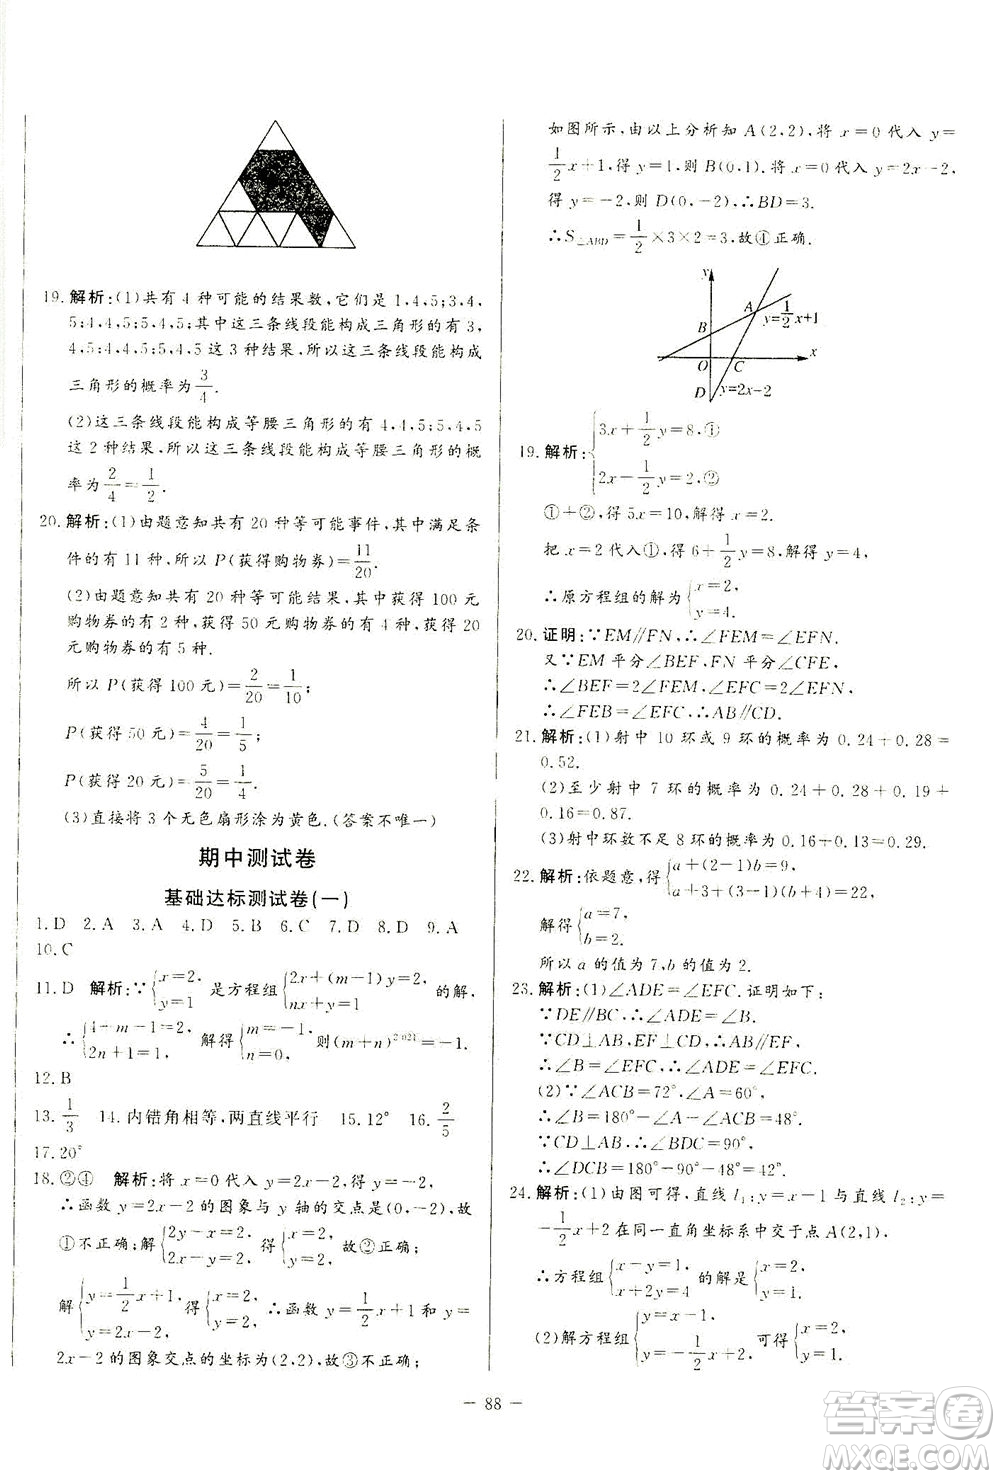 19. 解析:(1)共有 4 种可能的结果数,它们是 1,4,5;3,4,
5;4,4,5;5,4,5;其中这三条线段能构成三角形的有 3,
4,5;4,4,5;5,4,5 这 3 种结果,所以这三条线段能构成
三角形的概率为 3/4.
(2)这三条线段能构成等腰三角形的有 4,4,5;5,4,5
这 2 种结果,所以这三条线段能构成等腰三角形的概
率为 2/4=1/2.
20. 解析:(1)由题意知共有 20 种等可能事件,其中满足条
件的有 11 种,所以 P(获得购物券)=11/20.
(2)由题意共有 20 种等可能结果,其中获得 100 元
购物券的有 2 种,获得 50 元购物券的有 4 种,获得 20
元购物券的有 5 种.
所以 P(获得 100 元)=2/20=1/10;
P(获得 50 元)=4/20=1/5;
P(获得 20 元)=5/20=1/4.
(3)直接将 3 个无色扇形涂为黄色.(答案不唯一)
期中测试卷
基础达标测试卷(一)
1. D 2. A 3. A 4. D 5. B 6. C 7. D 8. D 9. A
10. C
11. D 解析:∵{x=2, y=1 是方程组{2x+(m-1)y=2, nx+y=1 的解,
∴{4+m-1=2, 2n+1=1, 解得{m=-1, n=0, 则(m+n)^2021=-1.
12. B
13. 1/3 14. 内错角相等,两直线平行 15. 12° 16. 2/5
17. 20°
18. ②④ 解析:将 x=0 代入 y=2x-2,得 y=-2,
∴函数 y=2x-2 的图象与 y 轴的交点是(0,-2),故
①不正确;解{2y-x=2, 2x-y=2, 得{x=2, y=2, 故②正确;
解{y=1/2x+1, y=2x-2, 得{x=2, y=2, ∴函数 y=1/2x+1 和 y=
2x-2 的图象交点的坐标为(2,2),故③不正确;
如图所示,由以上分析知 A(2,2),将 x=0 代入 y=
1/2x+1,得 y=1,则 B(0,1).将 x=0 代入 y=2x-2,
得 y=-2,则 D(0,-2),∴BD=3.
∴S△ABD=1/2×3×2=3,故④正确.
y
A
y=1/2x+1
B
O C x
D y=2x-2
19. 解析:{3x+1/2y=8,① 2x-1/2y=2.②
①+②,得 5x=10,解得 x=2.
把 x=2 代入①,得 6+1/2y=8,解得 y=4,
∴原方程组的解为{x=2, y=4.
20. 证明:∵EM∥FN,∴∠FEM=∠EFN.
又∵EM 平分∠BEF,FN 平分∠CFE,
∴∠BEF=2∠FEM,∠EFC=2∠EFN,
∴∠FEB=∠EFC,∴AB∥CD.
21. 解析:(1)射中 10 环或 9 环的概率为 0.24+0.28=
0.52.
(2)至少射中 7 环的概率为 0.24+0.28+0.19+
0.16=0.87.
(3)射中环数不足 8 环的概率为 0.16+0.13=0.29.
22. 解析:依题意,得{a+(2-1)b=9, a+3+(3-1)b+4=22,
解得{a=7, b=2.
所以 a 的值为 7,b 的值为 2.
23. 解析:(1)∠ADE=∠EFC.证明如下:
∵DE∥BC,∴∠ADE=∠B.
∵CD⊥AB,EF⊥CD,∴AB∥EF,
∴∠B=∠EFC,∴∠ADE=∠EFC.
(2)∵∠ACB=72°,∠A=60°,
∴∠B=180°-∠A-∠ACB=48°.
∵CD⊥AB,∴∠BDC=90°,
∴∠DCB=180°-90°-48°=42°.
24. 解析:(1)由图可得,直线 l₁:y=x-1 与直线 l₂:y=
-1/2x+2 在同一直角坐标系中交于点 A(2,1),
∴方程组{x-y=1, x+2y=4 的解是{x=2, y=1.
(2)解方程组{x-y=1, y=-1/2x+2, 可得{x=2, y=1,
— 88 —
答案圈
MXQE.COM